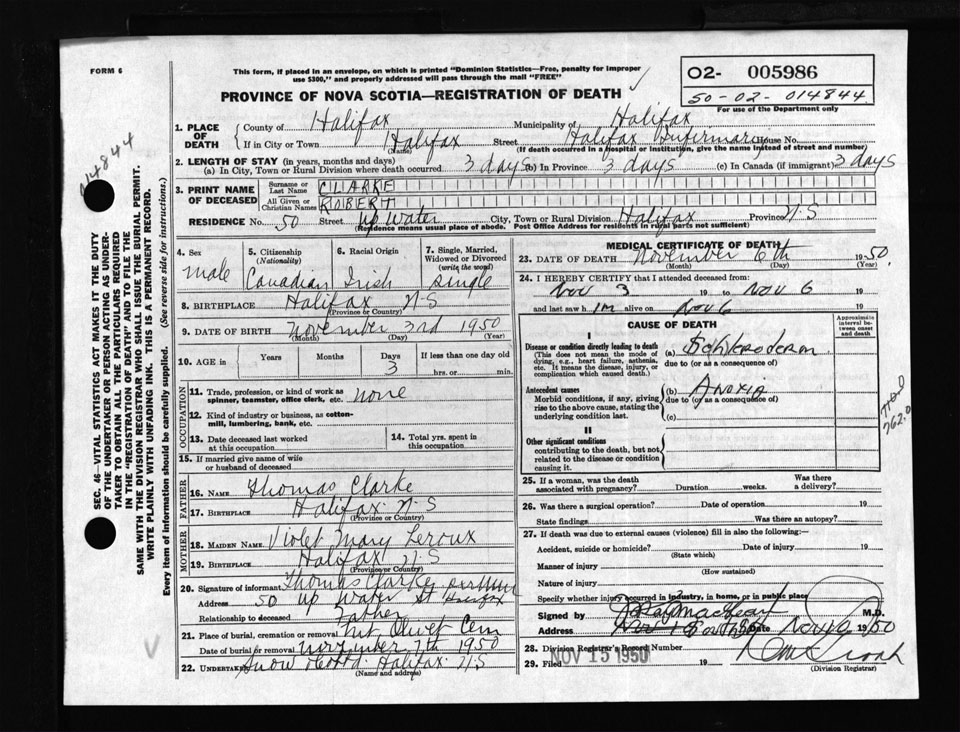 FORM 6
This form, if placed in an envelope, on which is printed "Dominion Statistics—Free, penalty for improper
use $300," and properly addressed will pass through the mail "FREE"
PROVINCE OF NOVA SCOTIA—REGISTRATION OF DEATH
02- 005986
50-02-014844
For use of the Department only
014844
1. PLACE OF DEATH
County of Halifax Municipality of Halifax
If in City or Town Halifax (Name) Street Halifax Infirmary House No.
(If death occurred in a hospital or institution, give the name instead of street and number)
2. LENGTH OF STAY (in years, months and days)
(a) In City, Town or Rural Division where death occurred 3 days (b) In Province 3 days (c) In Canada (if immigrant) 3 days
3. PRINT NAME OF DECEASED
Surname or Last Name CLARKE
All Given or Christian Names ROBERT
RESIDENCE No. 50 Street Up Water City, Town or Rural Division Halifax Province N.S
(Residence means usual place of abode. Post Office Address for residents in rural parts not sufficient)
4. Sex Male
5. Citizenship (Nationality) Canadian
6. Racial Origin Irish
7. Single, Married, Widowed or Divorced (write the word) Single
8. BIRTHPLACE Halifax N.S
(Province or Country)
9. DATE OF BIRTH November 3rd 1950
(Month) (Day) (Year)
10. AGE in Years Months Days 3 If less than one day old hrs. or min.
OCCUPATION
11. Trade, profession or kind of work as spinner, teamster, office clerk, etc. none
12. Kind of industry or business, as cotton-mill, lumbering, bank, etc.
13. Date deceased last worked at this occupation
14. Total yrs. spent in this occupation
15. If married give name of wife or husband of deceased
FATHER
16. NAME Thomas Clarke
17. BIRTHPLACE Halifax N.S
(Province or Country)
MOTHER
18. MAIDEN NAME Violet Mary Leroux
19. BIRTHPLACE Halifax N.S
(Province or Country)
20. Signature of informant Thomas Clarke
Address 50 Up Water St Halifax
Relationship to deceased Father
21. Place of burial, cremation or removal Mt. Olivet Cem
Date of burial or removal November 7th 1950
22. UNDERTAKER Snow Halifax N.S
(Name and address)
MEDICAL CERTIFICATE OF DEATH
23. DATE OF DEATH November 6th 1950
(Month) (Day) (Year)
24. I HEREBY CERTIFY that I attended deceased from:
Nov 3 19 to Nov 6 19
and last saw him alive on Nov 6 19
CAUSE OF DEATH
Approximate interval between onset and death
I
Disease or condition directly leading to death
(This does not mean the mode of dying, e.g., heart failure, asthenia, etc. It means the disease, injury, or complication which caused death.)
(a)
due to (or as a consequence of)
Antecedent causes
Morbid conditions, if any, giving rise to the above cause, stating the underlying condition last.
(b) Anoxia
due to (or as a consequence of)
(c)
II
Other significant conditions
contributing to the death, but not related to the disease or condition causing it.
762.0
25. If a woman, was the death associated with pregnancy? Duration weeks. Was there a delivery?
26. Was there a surgical operation? Date of operation 19
State findings Was there an autopsy?
27. If death was due to external causes (violence) fill in also the following:
Accident, suicide or homicide? (State which) Date of injury 19
Manner of injury (How sustained)
Nature of injury
Specify whether injury occurred in industry, in home, or in public place
Signed by M.D.
Address Date Nov 6 1950
28. Division Registrar's Record Number
29. Filed NOV 15 1950 19
(Division Registrar)
SEC. 46—VITAL STATISTICS ACT MAKES IT THE DUTY
OF THE UNDERTAKER OR PERSON ACTING AS UNDER-
TAKER TO OBTAIN ALL THE PARTICULARS REQUIRED
IN THE "REGISTRATION OF DEATH" AND TO FILE THE
SAME WITH THE DIVISION REGISTRAR WHO SHALL ISSUE THE BURIAL PERMIT.
WRITE PLAINLY WITH UNFADING INK. THIS IS A PERMANENT RECORD.
Every item of information should be carefully supplied. (See reverse side for instructions.)